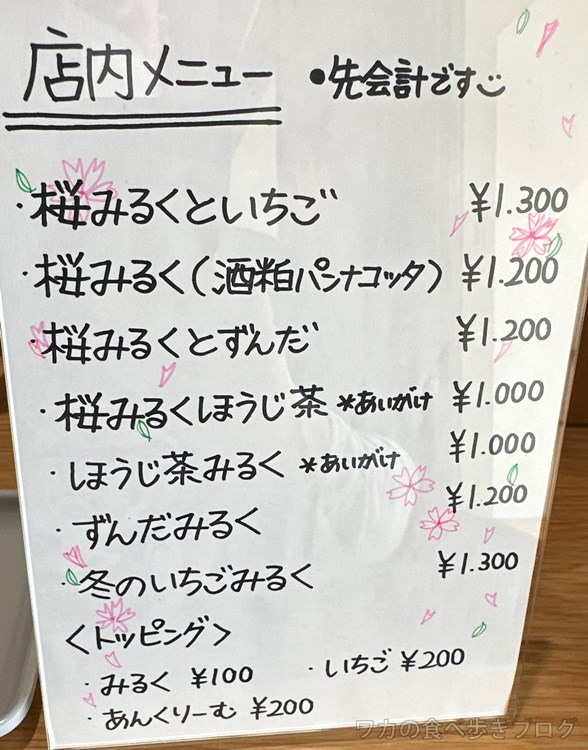 店内メニュー ●先会計です
・桜みるくといちご ¥1.300
・桜みるく(酒粕パンナコッタ) ¥1.200
・桜みるくとずんだ ¥1.200
・桜みるくほうじ茶 *あいがけ ¥1.000
・ほうじ茶みるく *あいがけ ¥1.000
・ずんだみるく ¥1.200
・冬のいちごみるく ¥1.300
<トッピング>
・みるく ¥100 ・いちご ¥200
・あんくりーむ ¥200
ワカの食べ歩きブログ